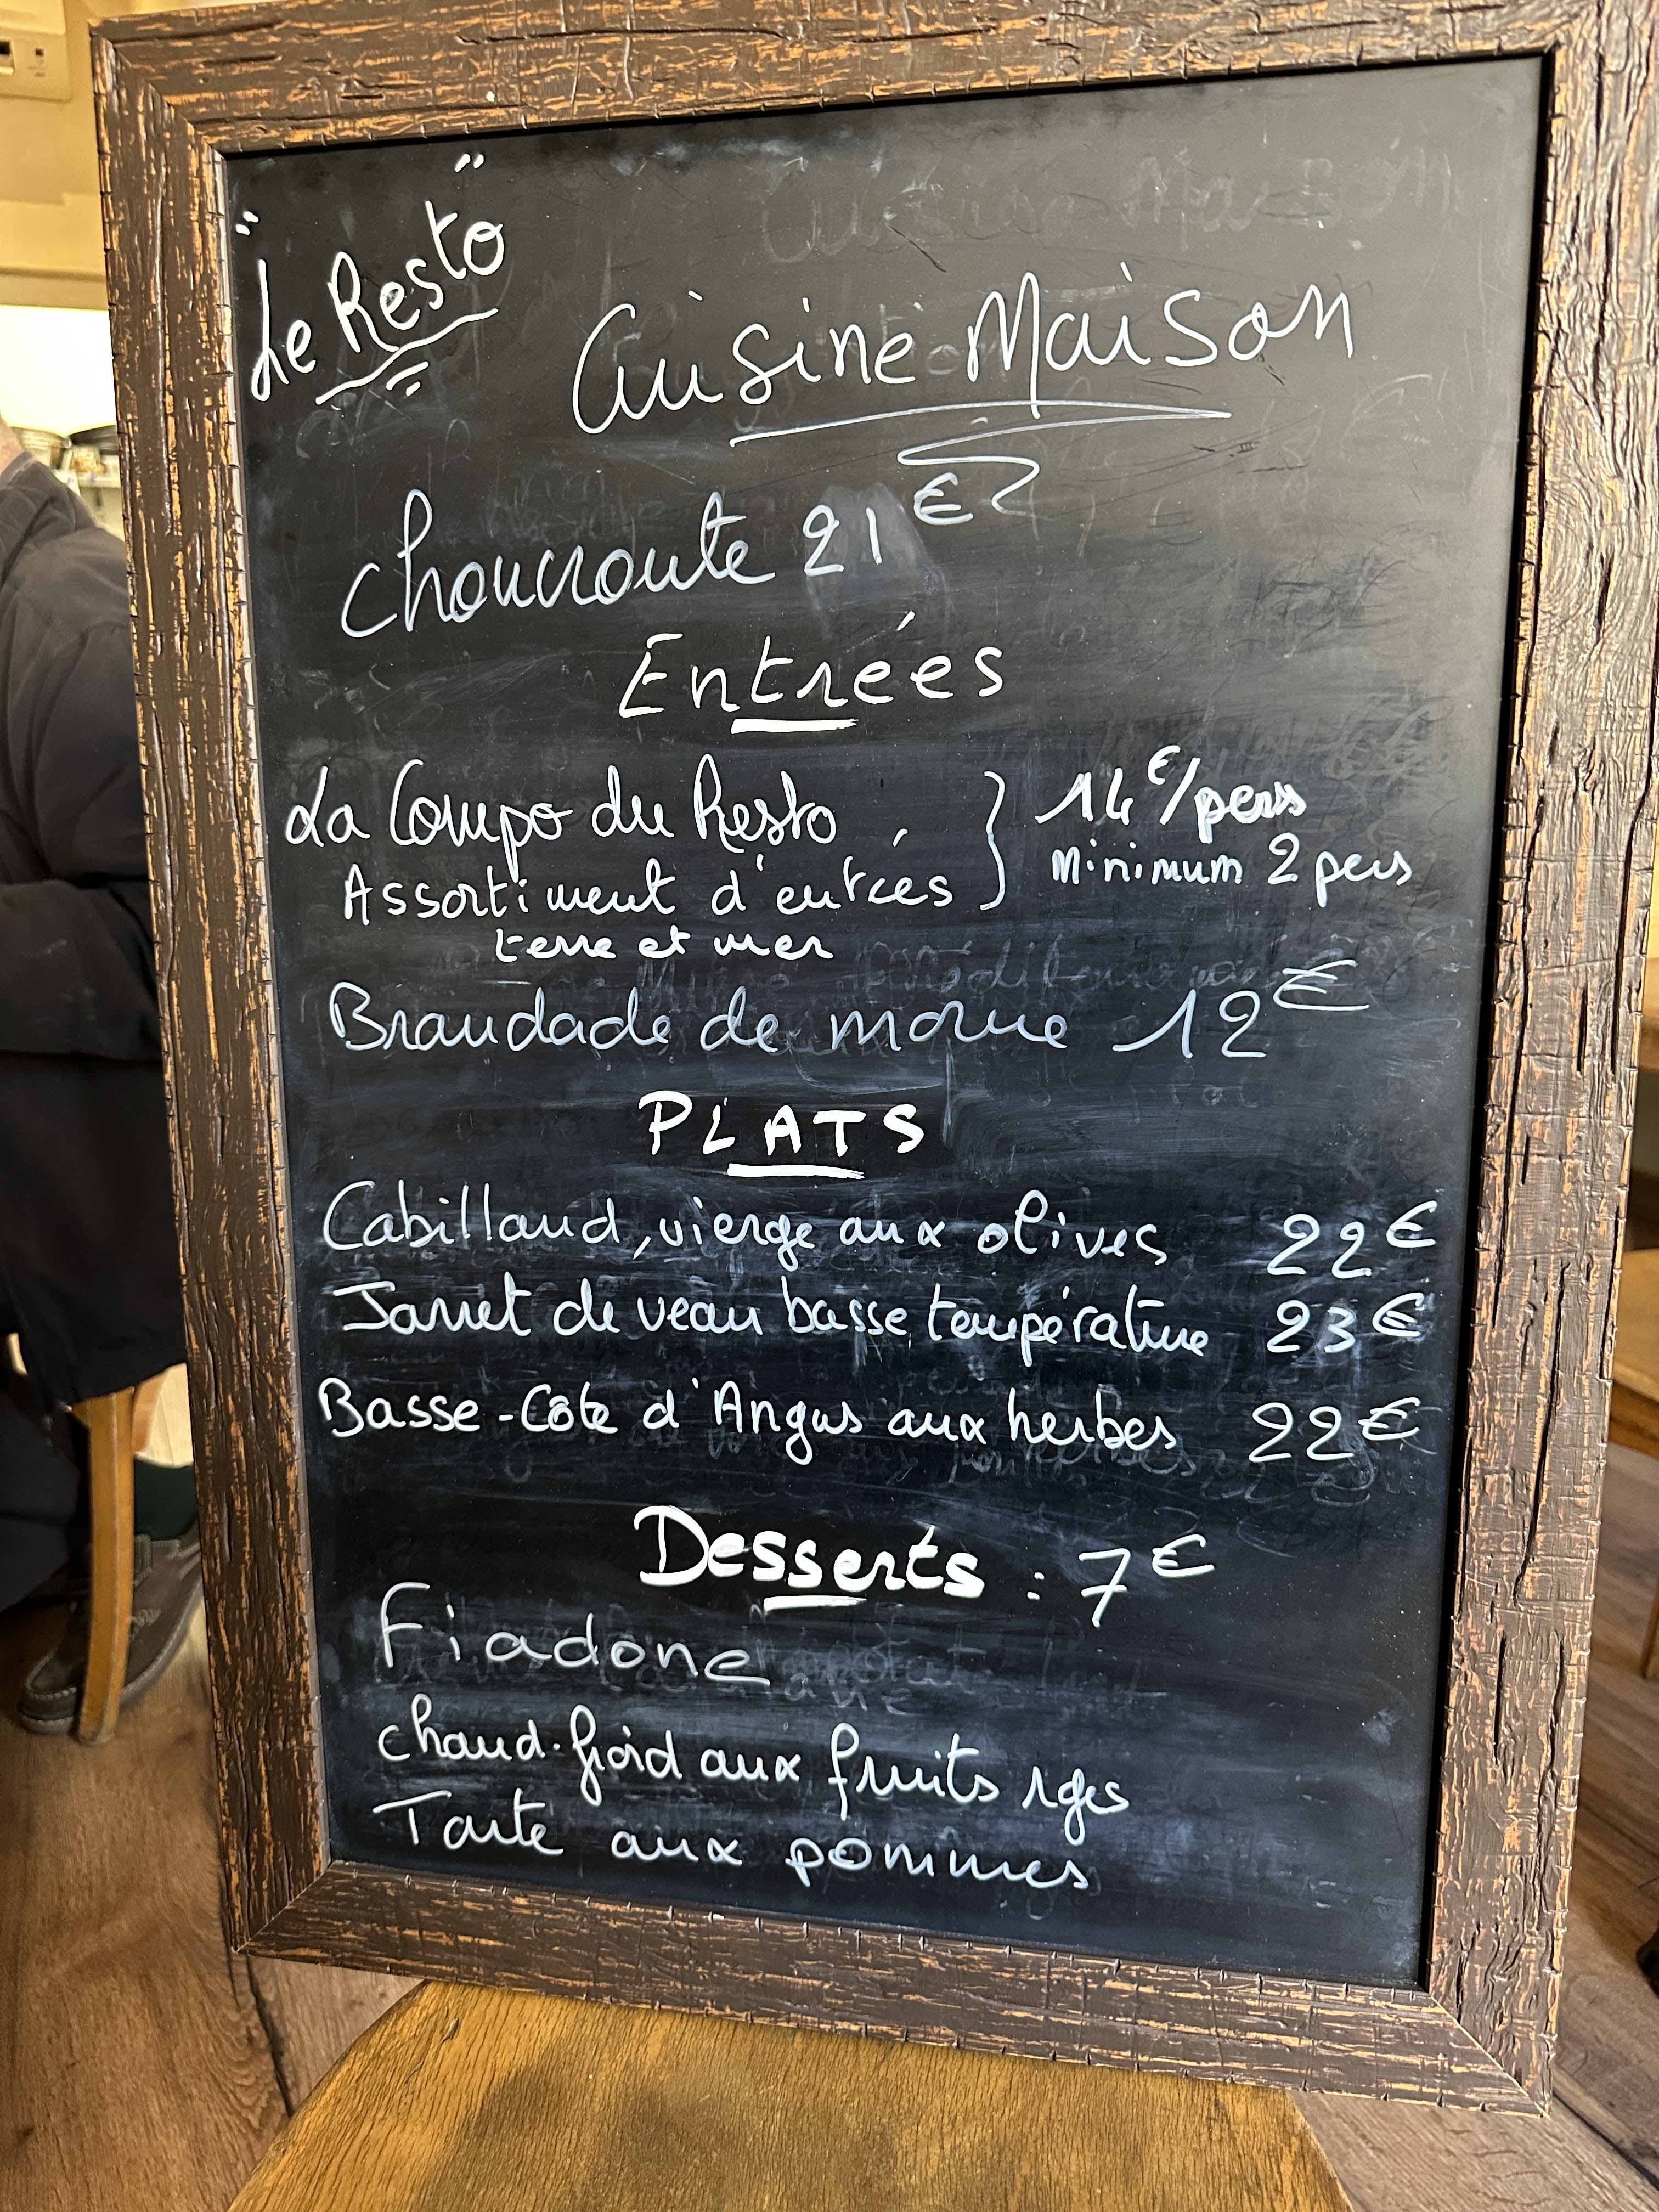 "Le Resto"
Cuisine Maison
Choucroute 21€
Entrées
La Compo du Resto } 14€/pers
Assortiment d'entrées } Minimum 2 pers
terre et mer
Brandade de morue 12€
PLATS
Cabillaud, vierge aux olives 22€
Jarret de veau basse température 23€
Basse-Côte d'Angus aux herbes 22€
Desserts : 7€
Fiadone
Chaud-froid aux fruits rges
Tarte aux pommes